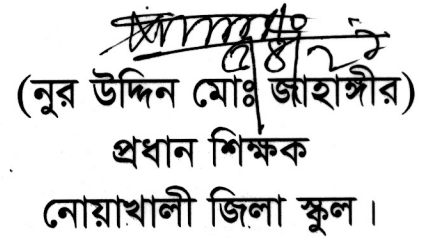 (নুর উদ্দিন মোঃ জাহাঙ্গীর)
প্রধান শিক্ষক
নোয়াখালী জিলা স্কুল।